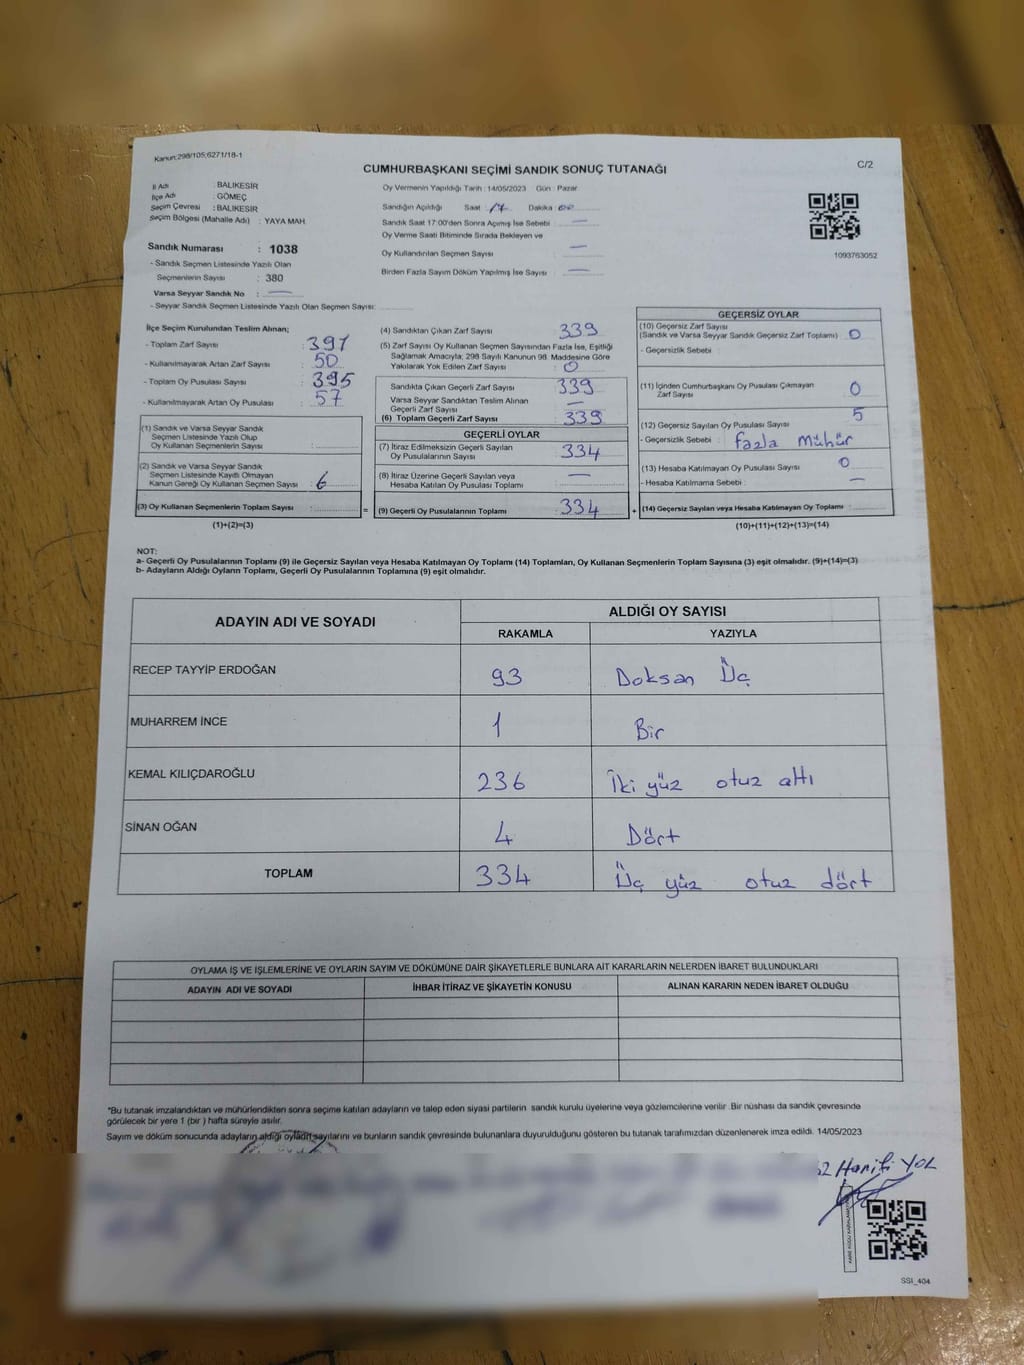 Kanun:298/105;6271/18-1
CUMHURBAŞKANI SEÇİMİ SANDIK SONUÇ TUTANAĞI
C/2
İl Adı : BALIKESİR
İlçe Adı : GÖMEÇ
Seçim Çevresi : BALIKESİR
Seçim Bölgesi (Mahalle Adı) : YAYA MAH.
Sandık Numarası : 1038
- Sandık Seçmen Listesinde Yazılı Olan
Seçmenlerin Sayısı : 380
Varsa Seyyar Sandık No : —
- Seyyar Sandık Seçmen Listesinde Yazılı Olan Seçmen Sayısı:
Oy Vermenin Yapıldığı Tarih : 14/05/2023 Gün : Pazar
Sandığın Açıldığı Saat : 17 Dakika : 00
Sandık Saat 17:00'den Sonra Açılmış İse Sebebi : —
Oy Verme Saati Bitiminde Sırada Bekleyen ve
Oy Kullandırılan Seçmen Sayısı : —
Birden Fazla Sayım Döküm Yapılmış İse Sayısı : —
1093763052
İlçe Seçim Kurulundan Teslim Alınan;
- Toplam Zarf Sayısı : 391
- Kullanılmayarak Artan Zarf Sayısı : 50
- Toplam Oy Pusulası Sayısı : 395
- Kullanılmayarak Artan Oy Pusulası : 57
(1) Sandık ve Varsa Seyyar Sandık
Seçmen Listesinde Yazılı Olup
Oy Kullanan Seçmenlerin Sayısı :
(2) Sandık ve Varsa Seyyar Sandık
Seçmen Listesinde Kayıtlı Olmayan
Kanun Gereği Oy Kullanan Seçmen Sayısı : 6
(3) Oy Kullanan Seçmenlerin Toplam Sayısı : =
(1)+(2)=(3)
(4) Sandıktan Çıkan Zarf Sayısı 339
(5) Zarf Sayısı Oy Kullanan Seçmen Sayısından Fazla İse, Eşitliği
Sağlamak Amacıyla; 298 Sayılı Kanunun 98. Maddesine Göre
Yakılarak Yok Edilen Zarf Sayısı : 0
Sandıkta Çıkan Geçerli Zarf Sayısı : 339
Varsa Seyyar Sandıktan Teslim Alınan
Geçerli Zarf Sayısı : —
(6) Toplam Geçerli Zarf Sayısı : 339
GEÇERLİ OYLAR
(7) İtiraz Edilmeksizin Geçerli Sayılan
Oy Pusulalarının Sayısı : 334
(8) İtiraz Üzerine Geçerli Sayılan veya
Hesaba Katılan Oy Pusulası Toplamı : —
(9) Geçerli Oy Pusulalarının Toplamı : 334 +
GEÇERSİZ OYLAR
(10) Geçersiz Zarf Sayısı
(Sandık ve Varsa Seyyar Sandık Geçersiz Zarf Toplamı) : 0
- Geçersizlik Sebebi :
(11) İçinden Cumhurbaşkanı Oy Pusulası Çıkmayan
Zarf Sayısı : 0
(12) Geçersiz Sayılan Oy Pusulası Sayısı : 5
- Geçersizlik Sebebi : fazla mühür
(13) Hesaba Katılmayan Oy Pusulası Sayısı : 0
- Hesaba Katılmama Sebebi : —
(14) Geçersiz Sayılan veya Hesaba Katılmayan Oy Toplamı :
(10)+(11)+(12)+(13)=(14)
NOT:
a- Geçerli Oy Pusulalarının Toplamı (9) ile Geçersiz Sayılan veya Hesaba Katılmayan Oy Toplamı (14) Toplamları, Oy Kullanan Seçmenlerin Toplam Sayısına (3) eşit olmalıdır. (9)+(14)=(3)
b- Adayların Aldığı Oyların Toplamı, Geçerli Oy Pusulalarının Toplamına (9) eşit olmalıdır.
ADAYIN ADI VE SOYADI
ALDIĞI OY SAYISI
RAKAMLA YAZIYLA
RECEP TAYYİP ERDOĞAN 93 Doksan Üç
MUHARREM İNCE 1 Bir
KEMAL KILIÇDAROĞLU 236 İki yüz otuz altı
SİNAN OĞAN 4 Dört
TOPLAM 334 Üç yüz otuz dört
OYLAMA İŞ VE İŞLEMLERİNE VE OYLARIN SAYIM VE DÖKÜMÜNE DAİR ŞİKAYETLERLE BUNLARA AİT KARARLARIN NELERDEN İBARET BULUNDUKLARI
ADAYIN ADI VE SOYADI İHBAR İTİRAZ VE ŞİKAYETİN KONUSU ALINAN KARARIN NEDEN İBARET OLDUĞU
*Bu tutanak imzalandıktan ve mühürlendikten sonra seçime katılan adayların ve talep eden siyasi partilerin sandık kurulu üyelerine veya gözlemcilerine verilir. Bir nüshası da sandık çevresinde
görülecek bir yere 1 (bir ) hafta süreyle asılır.
Sayım ve döküm sonucunda adayların aldığı oyların sayılarını ve bunların sandık çevresinde bulunanlara duyurulduğunu gösteren bu tutanak tarafımızdan düzenlenerek imza edildi. 14/05/2023
Hanifi YOL
SSI_404